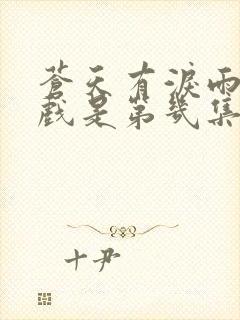 蒼天有淚雨
戲是第幾集
十尹